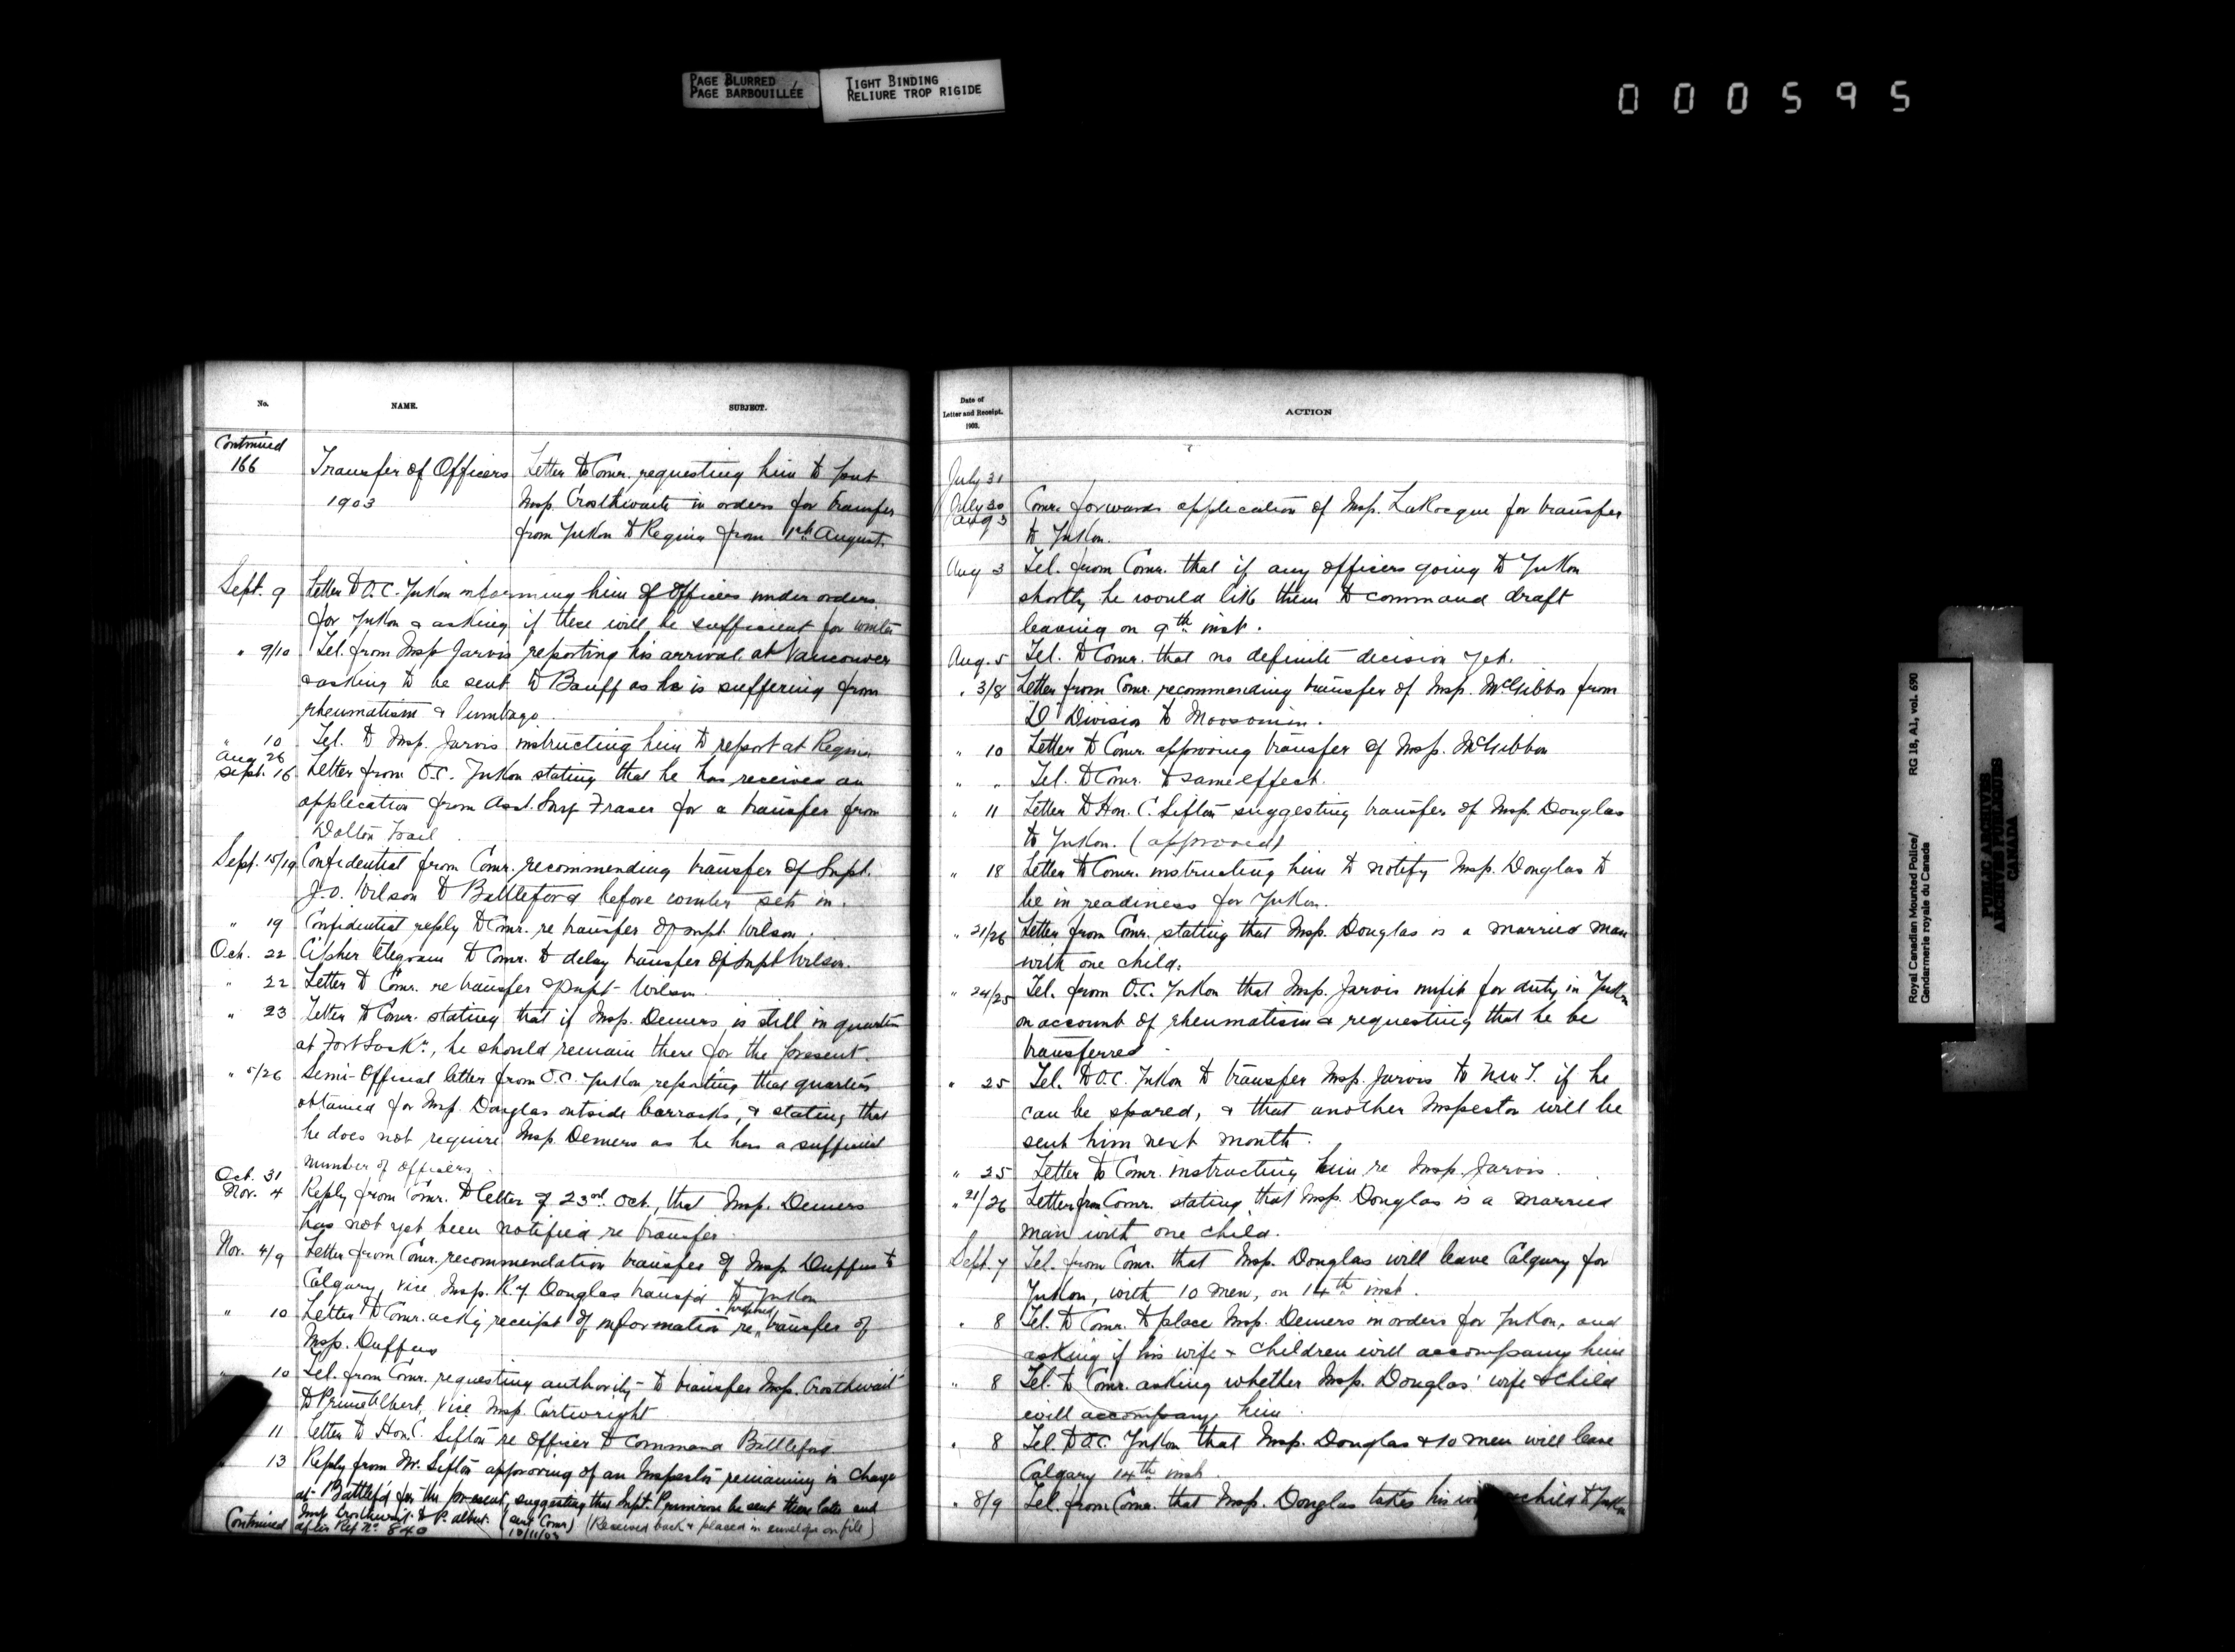 PAGE BLURRED
PAGE BARBOUILLÉE
TIGHT BINDING
RELIURE TROP RIGIDE
000595
No. NAME. SUBJECT.
Continued
166 Transfer of Officers Letter to Comr. requesting him to put
1903 Insp. Crosthwaite in orders for transfer
from Yukon to Regina from 1st August.
Sept. 9 Letter to O.C. Yukon informing him of Officers under orders
for Yukon & asking if these will be sufficient for winter
" 9/10 Tel. from Insp Jarvis reporting his arrival at Vancouver
& asking to be sent to Banff as he is suffering from
rheumatism & lumbago.
" 10 Tel. to Insp. Jarvis instructing him to report at Regina
Aug 26
Sept. 16 Letter from O.C. Yukon stating that he has received an
application from Asst. Surg Fraser for a transfer from
Dalton Trail
Sept. 15/19 Confidential from Comr. recommending transfer of Supt.
J.O. Wilson to Battleford before winter sets in.
" 19 Confidential reply to Comr. re transfer of Supt Wilson.
Oct. 22 Cipher telegram to Comr. to delay transfer of Supt Wilson.
" 22 Letter to Comr. re transfer of Supt Wilson.
" 23 Letter to Comr. stating that if Insp. Demers is still in quarters
at Fort Sask., he should remain there for the present.
" 5/26 Semi-Official letter from O.C. Yukon reporting that quarters
obtained for Insp. Douglas outside barracks, & stating that
he does not require Insp. Demers as he has a sufficient
number of officers.
Oct. 31
Nov. 4 Reply from Comr. to letter of 23rd. Oct., that Insp. Demers
has not yet been notified re transfer.
Nov. 4/9 Letter from Comr. recommendation transfer of Insp Duffus to
Calgary, vice Insp. R.Y Douglas transfd to Yukon
" 10 Letter to Comr. ackg receipt of information re proposed transfer of
Insp. Duffus
" 10 Tel. from Comr. requesting authority to transfer Insp. Crosthwait
to Prince Albert, vice Insp. Cartwright
11 Letter to Hon. C. Sifton re Officer to command Battleford
13 Reply from Mr. Sifton approving of an Inspector remaining in charge
at Battlefd for the present, suggesting that Supt. Primrose be sent there later and
Insp Crosthwait to P. Albert. (sent Comr) (Received back & placed in envelope on file)
Continued after Ref No. 840 10/11/03
Date of
Letter and Receipt.
1903.
ACTION
July 31
July 30
Aug 3 Comr. forwards application of Insp. LaRocque for transfer
to Yukon.
Aug 3 Tel. from Comr. that if any officers going to Yukon
shortly he would like them to command draft
leaving on 9th inst.
Aug. 5 Tel. to Comr. that no definite decision yet.
" 3/8 Letter from Comr. recommending transfer of Insp. McGibbon from
D Division to Moosomin.
" 10 Letter to Comr. approving transfer of Insp. McGibbon
" " Tel. to Comr. to same effect.
" 11 Letter to Hon. C. Sifton suggesting transfer of Insp. Douglas
to Yukon. (approved)
" 18 Letter to Comr. instructing him to notify Insp. Douglas to
be in readiness for Yukon.
" 21/26 Letter from Comr. stating that Insp. Douglas is a married man
with one child.
" 24/25 Tel. from O.C. Yukon that Insp. Jarvis unfit for duty in Yukon
on account of rheumatism & requesting that he be
transferred.
" 25 Tel. to O.C. Yukon to transfer Insp. Jarvis to N.W.T. if he
can be spared, & that another Inspector will be
sent him next month.
" 25 Letter to Comr. instructing him re Insp. Jarvis.
" 21/26 Letter from Comr. stating that Insp. Douglas is a married
man with one child.
Sept. 7 Tel. from Comr. that Insp. Douglas will leave Calgary for
Yukon, with 10 men, on 14th inst.
" 8 Tel. to Comr. to place Insp. Demers in orders for Yukon, and
asking if his wife & children will accompany him
" 8 Tel. to Comr. asking whether Insp. Douglas' wife & child
will accompany him.
" 8 Tel. to O.C. Yukon that Insp. Douglas & 10 men will leave
Calgary 14th inst.
" 8/9 Tel. from Comr. that Insp. Douglas takes his child to Yukon
Royal Canadian Mounted Police/
Gendarmerie royale du Canada
RG 18, A1, vol. 690
PUBLIC ARCHIVES
ARCHIVES PUBLIQUES
CANADA